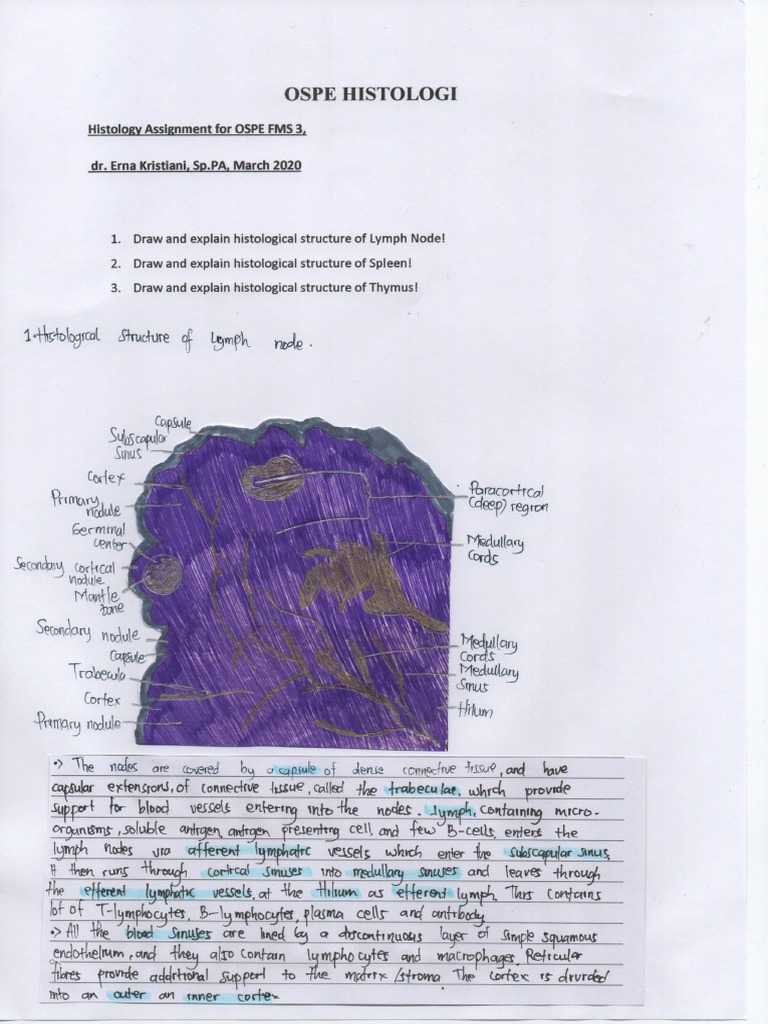 OSPE HISTOLOGI
Histology Assignment for OSPE FMS 3,
dr. Erna Kristiani, Sp.PA, March 2020
1. Draw and explain histological structure of Lymph Node!
2. Draw and explain histological structure of Spleen!
3. Draw and explain histological structure of Thymus!
1. Histological structure of Lymph node.
Capsule
Subscapular
sinus
Cortex
Primary
nodule
Germinal
center
Secondary cortical
nodule
Mantle
zone
Secondary nodule
Capsule
Trabecula
Cortex
Primary nodule
Paracortical
(deep) region
Medullary
Cords
Medullary
Cords
Medullary
Sinus
Hilum
•> The nodes are covered by a capsule of dense connective tissue, and have
capsular extensions, of connective tissue, called the trabeculae, which provide
support for blood vessels entering into the nodes. Lymph, containing micro-
organisms, soluble antigen, antigen presenting cell, and few B-cells, enters the
lymph nodes via afferent lymphatic vessels which enter the subscapular sinus.
It then runs through cortical sinuses into medullary sinuses and leaves through
the efferent lymphatic vessels, at the Hilium as efferent lymph. This contains
lot of T-lymphocytes, B-lymphocytes, plasma cells and antibody
•> All the blood sinuses are lined by a discontinuous layer of simple squamous
endothelium, and they also contain lymphocytes and macrophages. Reticular
fibres provide additional support to the matrix/stroma The cortex is divided
into an outer an inner cortex.